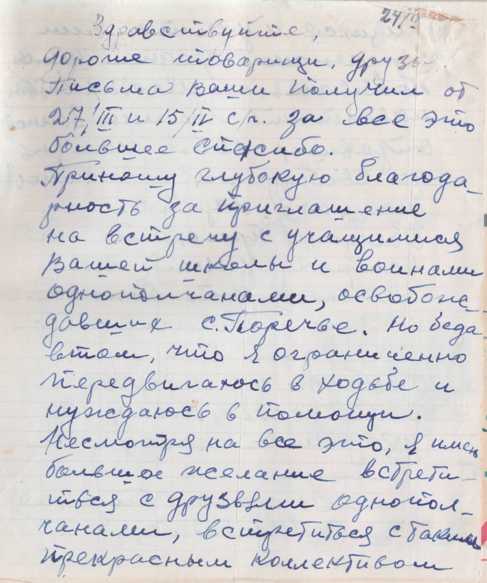 24/IV
Здравствуйте,
дорогие товарищи, друзья.
Письма ваши получил от
27/III и 15/IV с/г. за все это
большее спасибо.
Приношу глубокую благода-
рность за приглашение
на встречу с учащимися
вашей школы и воинами
однополчанами, освобож-
давших с. Поречье. Но беда
втом, что я ограниченно
передвигаюсь в ходьбе и
нуждаюсь в помощи.
Несмотря на все это, я имею
большое желание встрети-
ться с друзьями однопол-
чанами, встретиться с таким
прекрасным коллективом